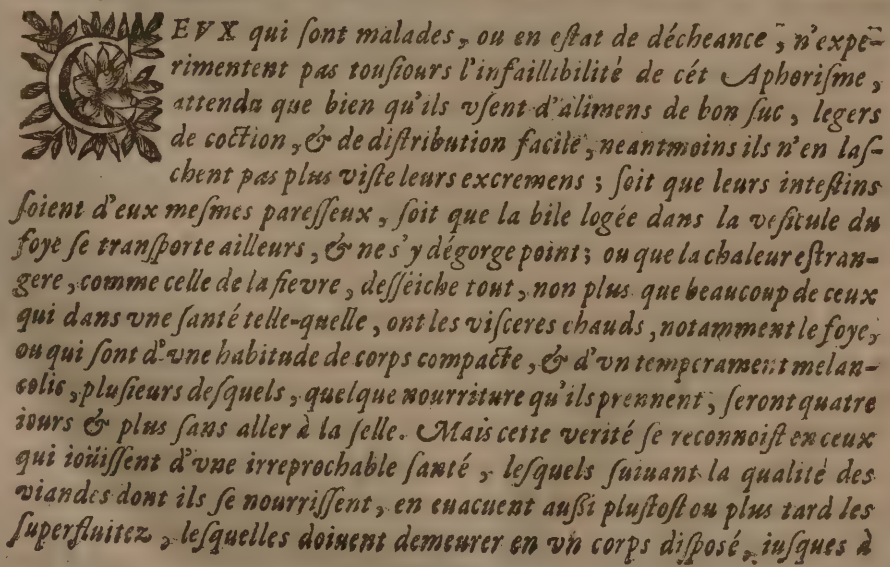 CEVX qui ſont malades, ou en eſtat de décheance, n'expe-
rimentent pas touſiours l'infaillibilité de cét Aphoriſme,
attendu que bien qu'ils vſent d'alimens de bon ſuc, legers
de coction, & de diſtribution facile, neantmoins ils n'en laſ-
chent pas plus viſte leurs excremens ; ſoit que leurs inteſtins
ſoient d'eux meſmes pareſſeux, ſoit que la bile logée dans la veſicule du
foye ſe tranſporte ailleurs, & ne s'y dégorge point ; ou que la chaleur eſtran-
gere, comme celle de la fievre, deſſéiche tout, non plus que beaucoup de ceux
qui dans vne ſanté telle-quelle, ont les viſceres chauds, notamment le foye,
ou qui ſont d'vne habitude de corps compacte, & d'vn temperament melan-
colic, pluſieurs deſquels, quelque nourriture qu'ils prennent, ſeront quatre
iours & plus ſans aller à la ſelle. Mais cette verité ſe reconnoiſt en ceux
qui ioüiſſent d'vne irreprochable ſanté, leſquels ſuiuant la qualité des
viandes dont ils ſe nourriſſent, en euacuent auſſi pluſtoſt ou plus tard les
ſuperfluitez, leſquelles doiuent demeurer en vn corps diſpoſé, iuſques à